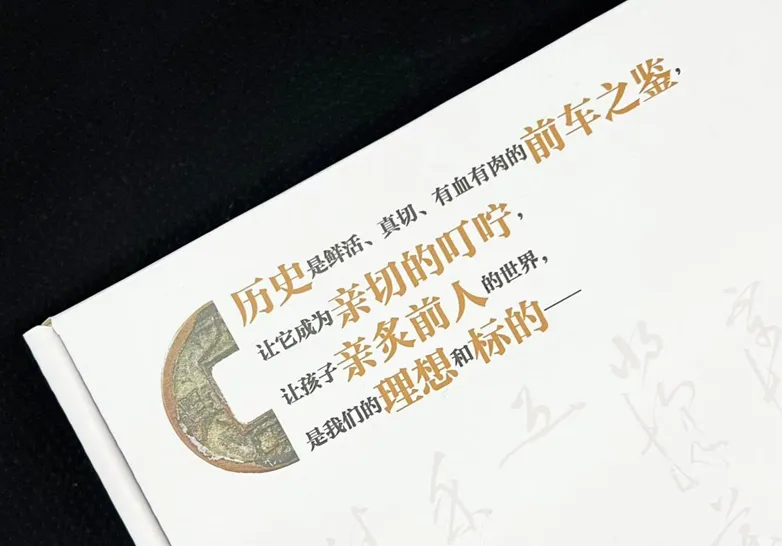 历史是鲜活、真切、有血有肉的前车之鉴,
让它成为亲切的叮咛,
让孩子亲炙前人的世界,
是我们的理想和标的——